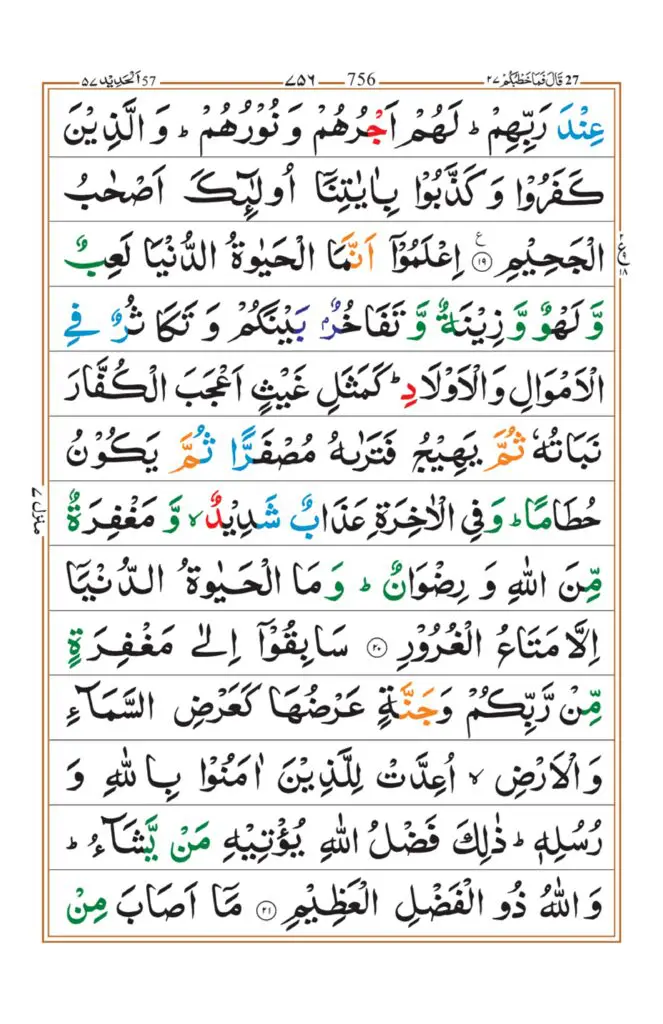 27 قَالَ فَمَا خَطْبُكُمْ ٢٧ 756 ٧٥٦ 57 اَلْحَدِيْد ٥٧
عِنْدَ رَبِّهِمْ ؕ لَهُمْ اَجْرُهُمْ وَ نُوْرُهُمْ ؕ وَ الَّذِيْنَ
كَفَرُوْا وَ كَذَّبُوْا بِاٰيٰتِنَاۤ اُولٰٓئِكَ اَصْحٰبُ
الْجَحِيْمِ ۟ ١٩ ع اِعْلَمُوْۤا اَنَّمَا الْحَيٰوةُ الدُّنْيَا لَعِبٌ
ع ١٨
وَّ لَهْوٌ وَّ زِيْنَةٌ وَّ تَفَاخُرٌۢ بَيْنَكُمْ وَ تَكَاثُرٌ فِي
الْاَمْوَالِ وَ الْاَوْلَادِ ؕ كَمَثَلِ غَيْثٍ اَعْجَبَ الْكُفَّارَ
نَبَاتُهٗ ثُمَّ يَهِيْجُ فَتَرٰىهُ مُصْفَرًّا ثُمَّ يَكُوْنُ
حُطَامًا ؕ وَ فِي الْاٰخِرَةِ عَذَابٌ شَدِيْدٌ ۙ وَّ مَغْفِرَةٌ
منزل ٧
مِّنَ اللّٰهِ وَ رِضْوَانٌ ؕ وَ مَا الْحَيٰوةُ الدُّنْيَاۤ
اِلَّا مَتَاعُ الْغُرُوْرِ ٢٠ سَابِقُوْۤا اِلٰى مَغْفِرَةٍ
مِّنْ رَّبِّكُمْ وَ جَنَّةٍ عَرْضُهَا كَعَرْضِ السَّمَآءِ
وَ الْاَرْضِ ۙ اُعِدَّتْ لِلَّذِيْنَ اٰمَنُوْا بِاللّٰهِ وَ
رُسُلِهٖ ؕ ذٰلِكَ فَضْلُ اللّٰهِ يُؤْتِيْهِ مَنْ يَّشَآءُ ؕ
وَ اللّٰهُ ذُو الْفَضْلِ الْعَظِيْمِ ٢١ مَاۤ اَصَابَ مِنْ